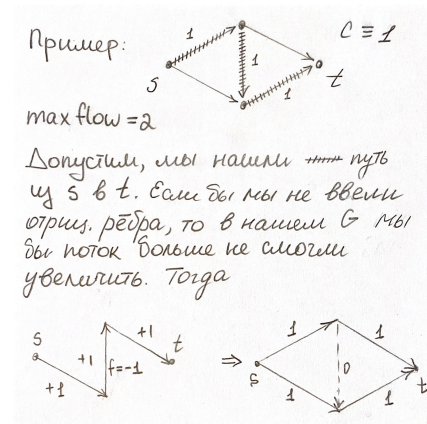 Пример:
1
C ≡ 1
1
s
1
t
max flow = 2
Допустим, мы нашли путь
из s в t. Если бы мы не ввели
отриц. рёбра, то в нашем G мы
бы поток больше не смогли
увеличить. Тогда
s
+1
t
+1
f=-1
+1
⇒
s
1
1
0
1
1
t